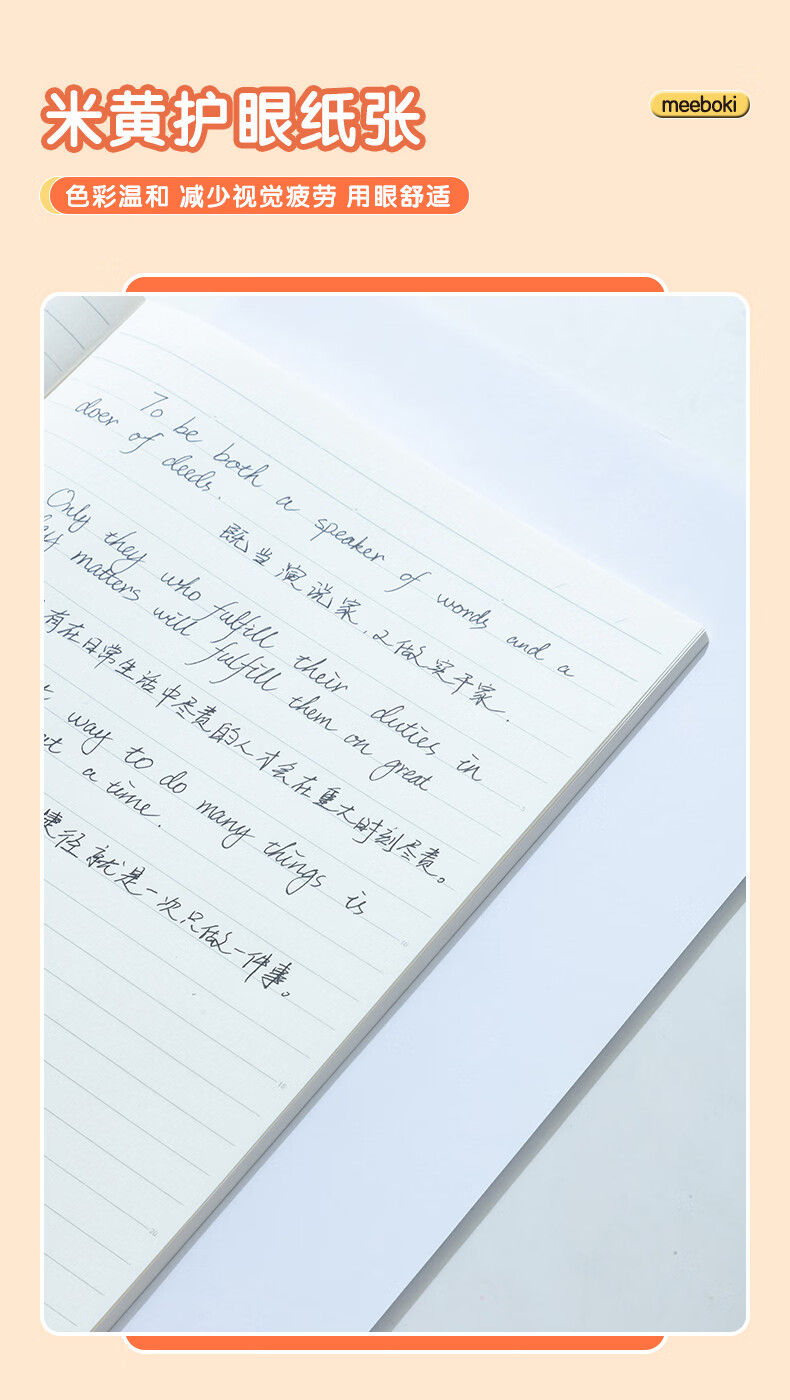 米黄护眼纸张
meeboki
色彩温和 减少视觉疲劳 用眼舒适
To be both a speaker of words and a
doer of deeds.
既当演说家,又做实干家.
Only they who fulfill their duties in
matters will fulfill them on great
有在日常生活中尽责的人才会在重大时刻尽责。
way to do many things is
a time.
捷径就是一次只做一件事。